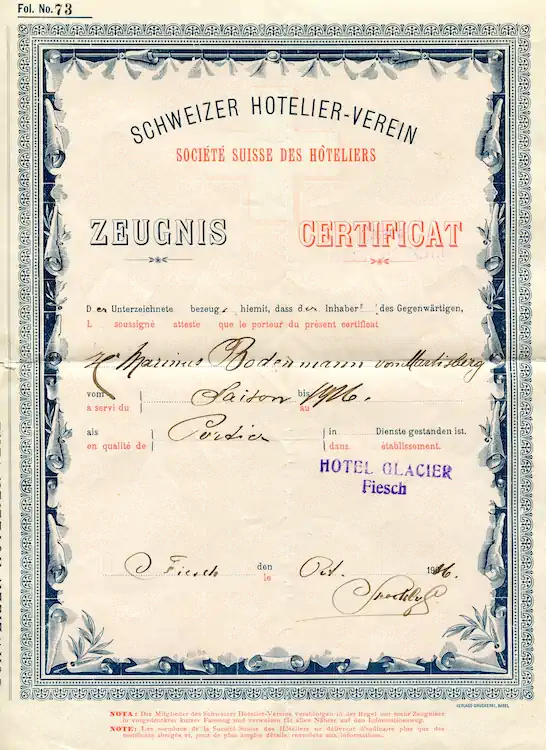 Fol. No. 73
SCHWEIZER HOTELIER-VEREIN
SOCIÉTÉ SUISSE DES HÔTELIERS
ZEUGNIS CERTIFICAT
Der Unterzeichnete bezeugt hiemit, dass der Inhaber des Gegenwärtigen,
L soussigné atteste que le porteur du présent certificat
Hr Marinus Bodenmann von Martisberg
vom Saison bis 1926.
a servi du au
als Portier in Dienste gestanden ist.
en qualité de dans établissement.
HOTEL GLACIER
Fiesch
Fiesch den Okt. 1926.
le
VERLAGS-DRUCKEREI, BASEL
NOTA: Die Mitglieder des Schweizer Hotelier-Vereins verabfolgen in der Regel nur mehr Zeugnisse
in vorgedruckter kurzer Fassung und verweisen für alles Nähere auf den Informationsweg.
NOTE: Les membres de la Société Suisse des Hôteliers ne délivrent d'ordinaire plus que des
certificats abrégés et, pour de plus amples détails, renvoient aux informations.